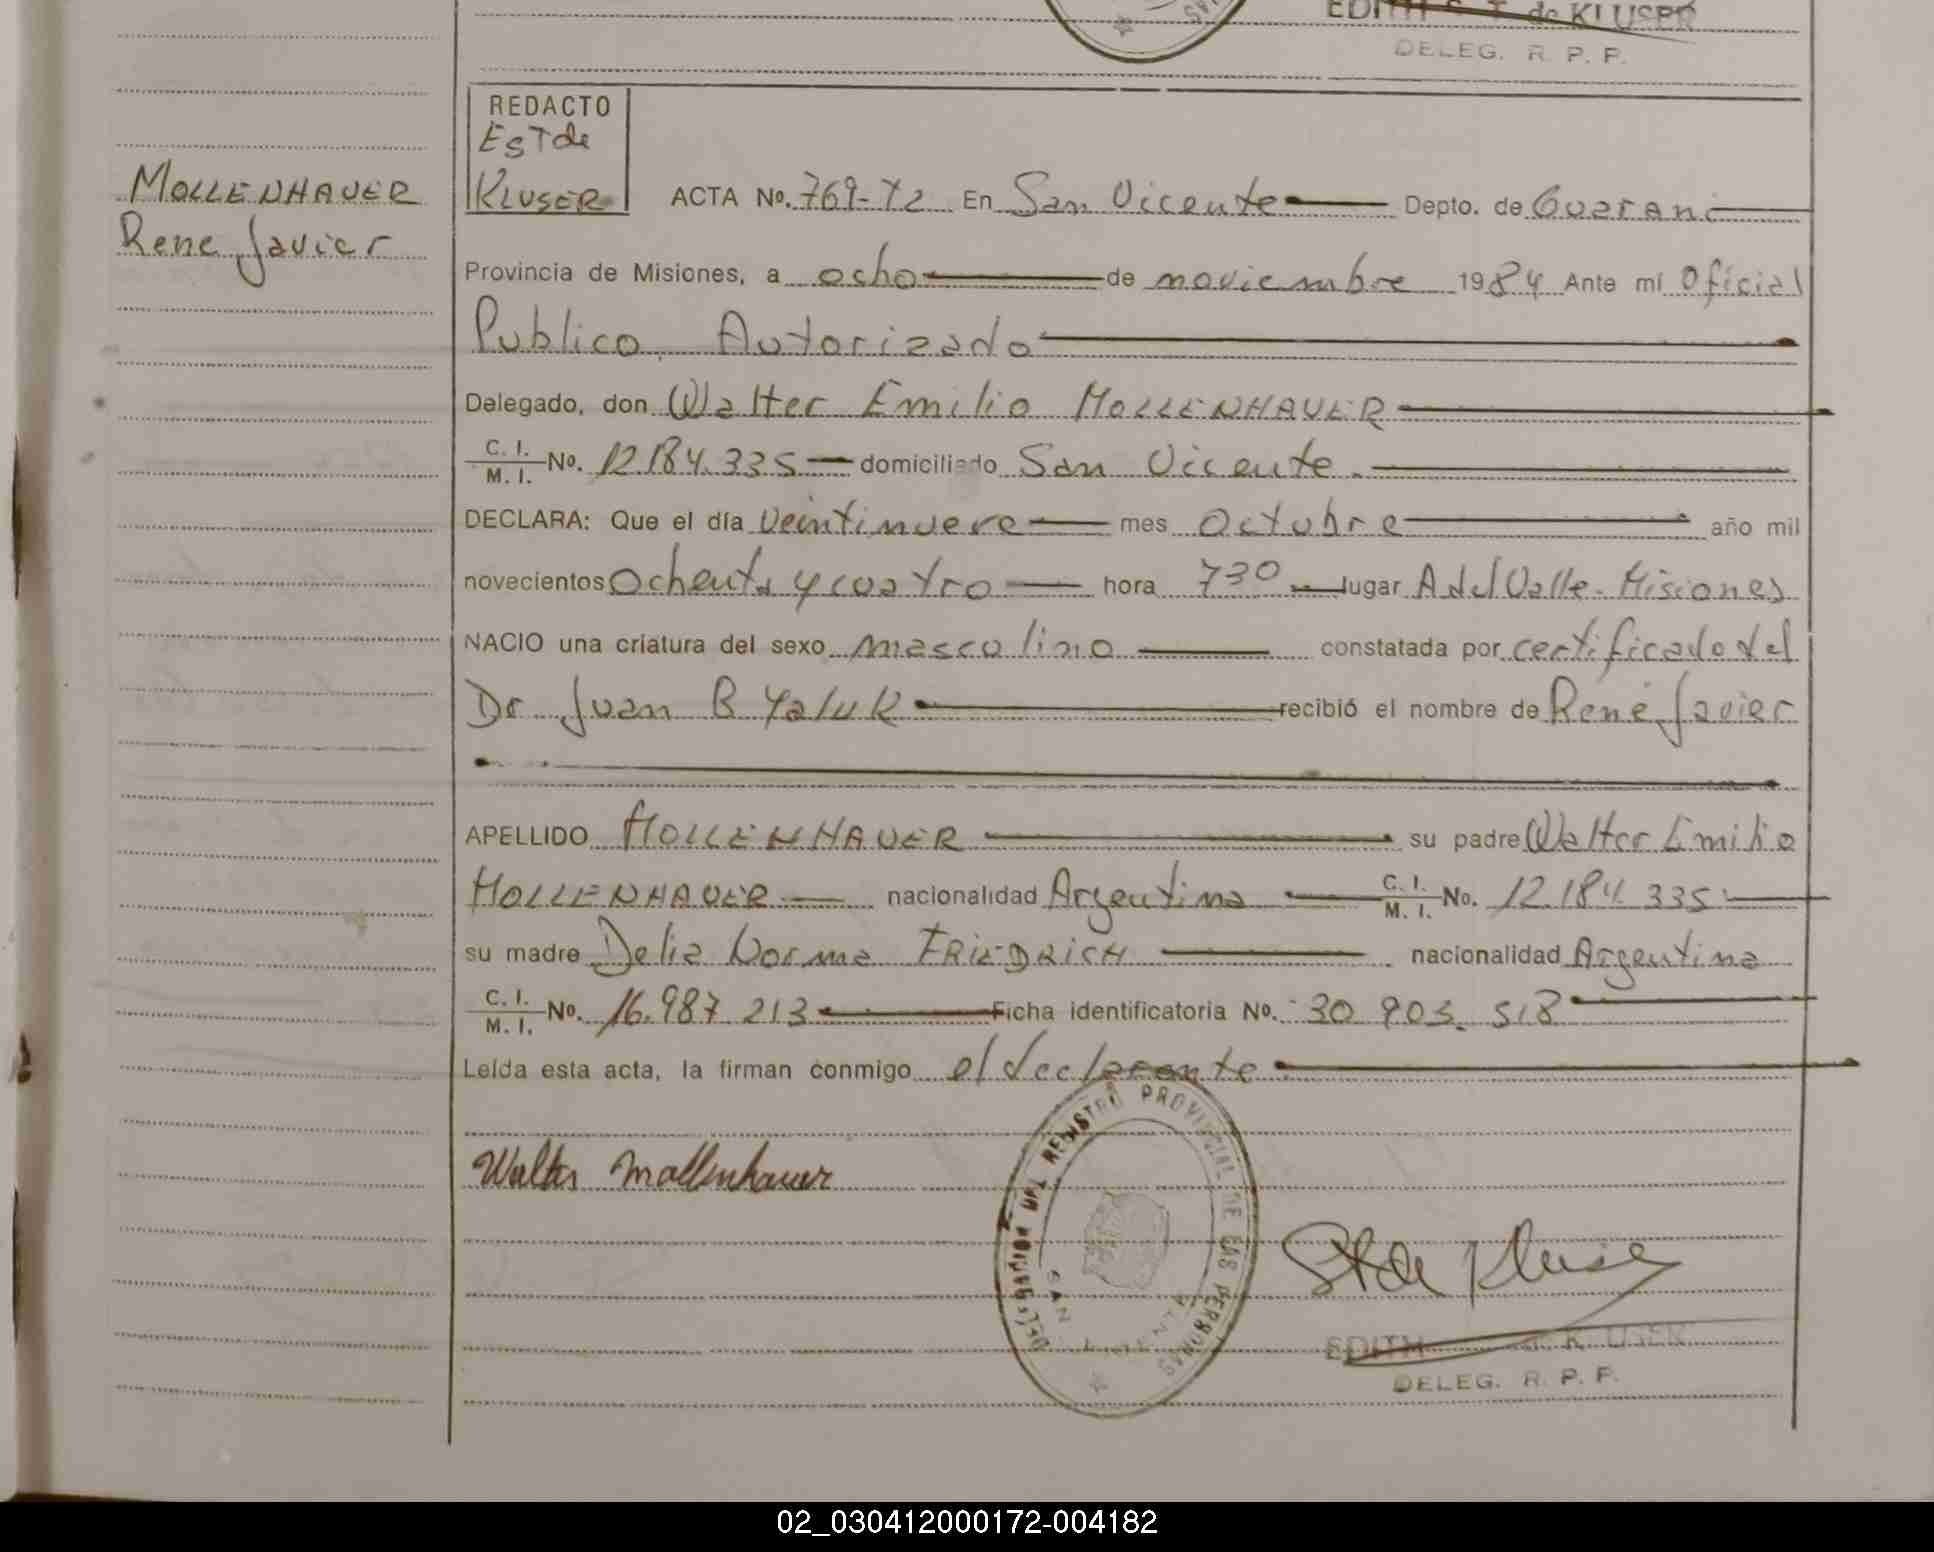 EDITH S. T. de KLUSER
DELEG. R. P. P.
REDACTO
EST de
KLUSER
MOLLENHAUER
Rene Javier
ACTA No. 769-T2 En San Vicente Depto. de Guarani
Provincia de Misiones, a ocho de noviembre 1984 Ante mí Oficial
Publico Autorizado
Delegado, don Walter Emilio MOLLENHAUER
C. I.
M. I. No. 12.184.335 domiciliado San Vicente.
DECLARA: Que el día Veintinueve mes Octubre año mil
novecientos Ochenta y cuatro hora 730 lugar A del Valle. Misiones
NACIO una criatura del sexo masculino constatada por certificado del
Dr Juan B Yaluk recibió el nombre de René Javier
APELLIDO MOLLENHAUER su padre Walter Emilio
MOLLENHAUER nacionalidad Argentina C. I. M. I. No. 12.184.335
su madre Delia Norma FRIEDRICH nacionalidad Argentina
C. I.
M. I. No. 16.987 213 Ficha identificatoria No. 30 903. 518
Leída esta acta, la firman conmigo el declarante
Walter Mollenhauer
DELEGACION DEL REGISTRO PROVINCIAL DE LAS PERSONAS
SAN VICENTE
St de Kluser
EDITH KLUSER
DELEG. R. P. P.
02_030412000172-004182